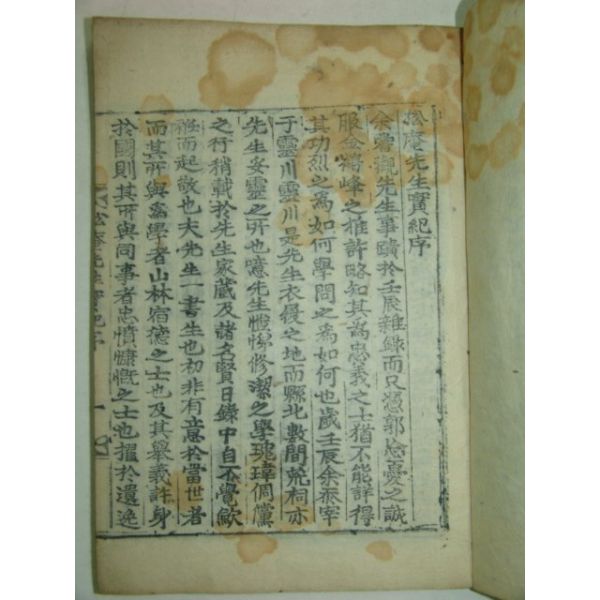 松庵先生實紀序
余嘗觀先生事蹟於壬辰雜錄而又憑郭忘憂之誠
服金鶴峰之推許略知其為忠義之士猶不能詳得
其功烈之為如何學問之為如何也歲壬辰余忝宰
于靈川靈川是先生衣履之地而縣北數間兗祠亦
先生妥靈之所也噫先生惟悌修潔之學瑰瑋倜儻
之行稍載於先生家藏及諸名賢日錄中自不覺歛
袵而起敬也夫先生一書生也初非有意於當世者
而其所與為學者山林宿德之士也及其舉義許身
於國則其所與同事者忠憤慷慨之士也擢於遺逸
松庵先生實紀序
一